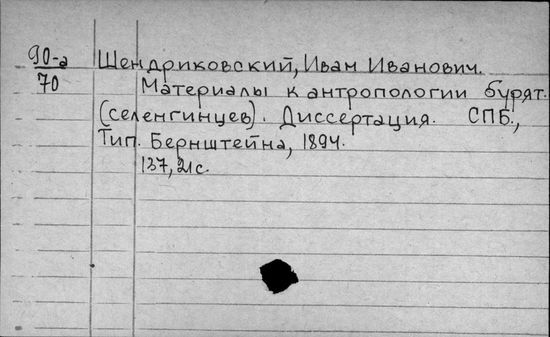 90-а
70
Шендриковский, Иван Иванович.
Материалы к антропологии бурят.
(селенгинцев). Диссертация. СПБ.,
Тип. Бернштейна, 1894.
137, 21 с.